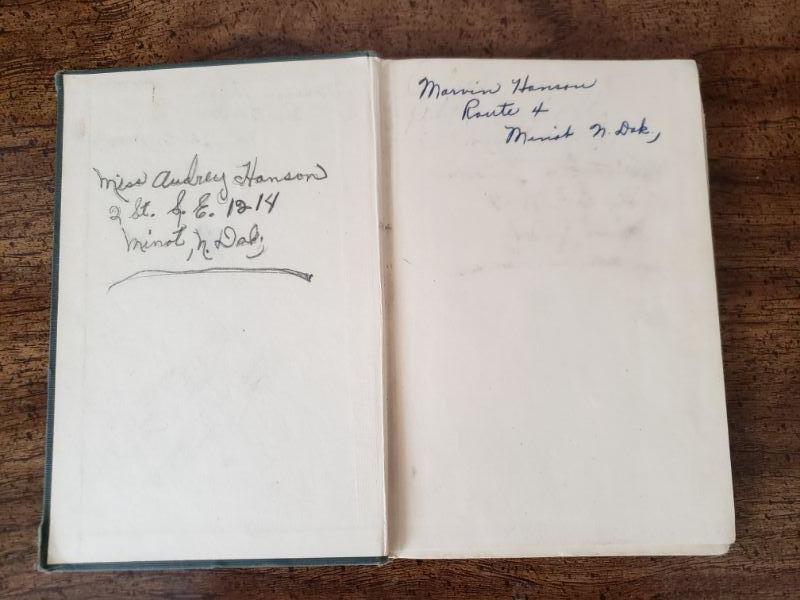 Miss Audrey Hanson
2 St. S. E. 1214
Minot, N. Dak,
Marvin Hanson
Route 4
Minot N. Dak,